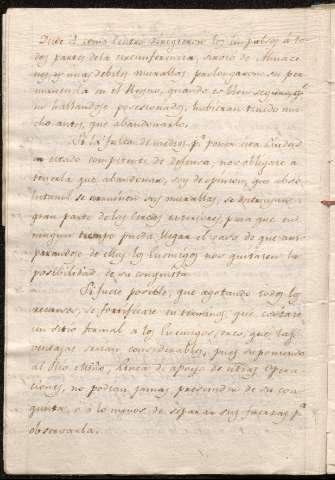 Desde el como Centro dirigieron los impulsos á to-
dos partes de la circunferencia, sirvio de Almace-
nes, y unas debiles murallas prolongaron su per-
manencia en el Reyno, quando es bien seguro, qᵉ
no hallandose posesionados, hubieran tenido mu-
cho antes, que abandonarlo.
Si la falta de medios pª poner esta Ciudad
en estado competente de defensa, nos obligare a
tenerla que abandonar, soy de opinion, que abso-
lutamte se arruinen sus murallas, se destruyan
gran parte de las cercas exteriores, para que en
ningun tiempo pueda llegar el caso de que am-
parandose de ellas los Enemigos nos quitaren la
posibilidad de su conquista.
Si fuere posible, que agotando todos los
recursos, se fortificare en terminos, que costare
un sitio formal a los Enemigos, creo, que las
ventajas serian considerables, pues suponiendo
al Rio Miño, linea de apoyo de otras Opera-
ciones, no podian jamas prescindir de su con-
quista, o á lo menos de separar sus fuerzas pª
observarla.